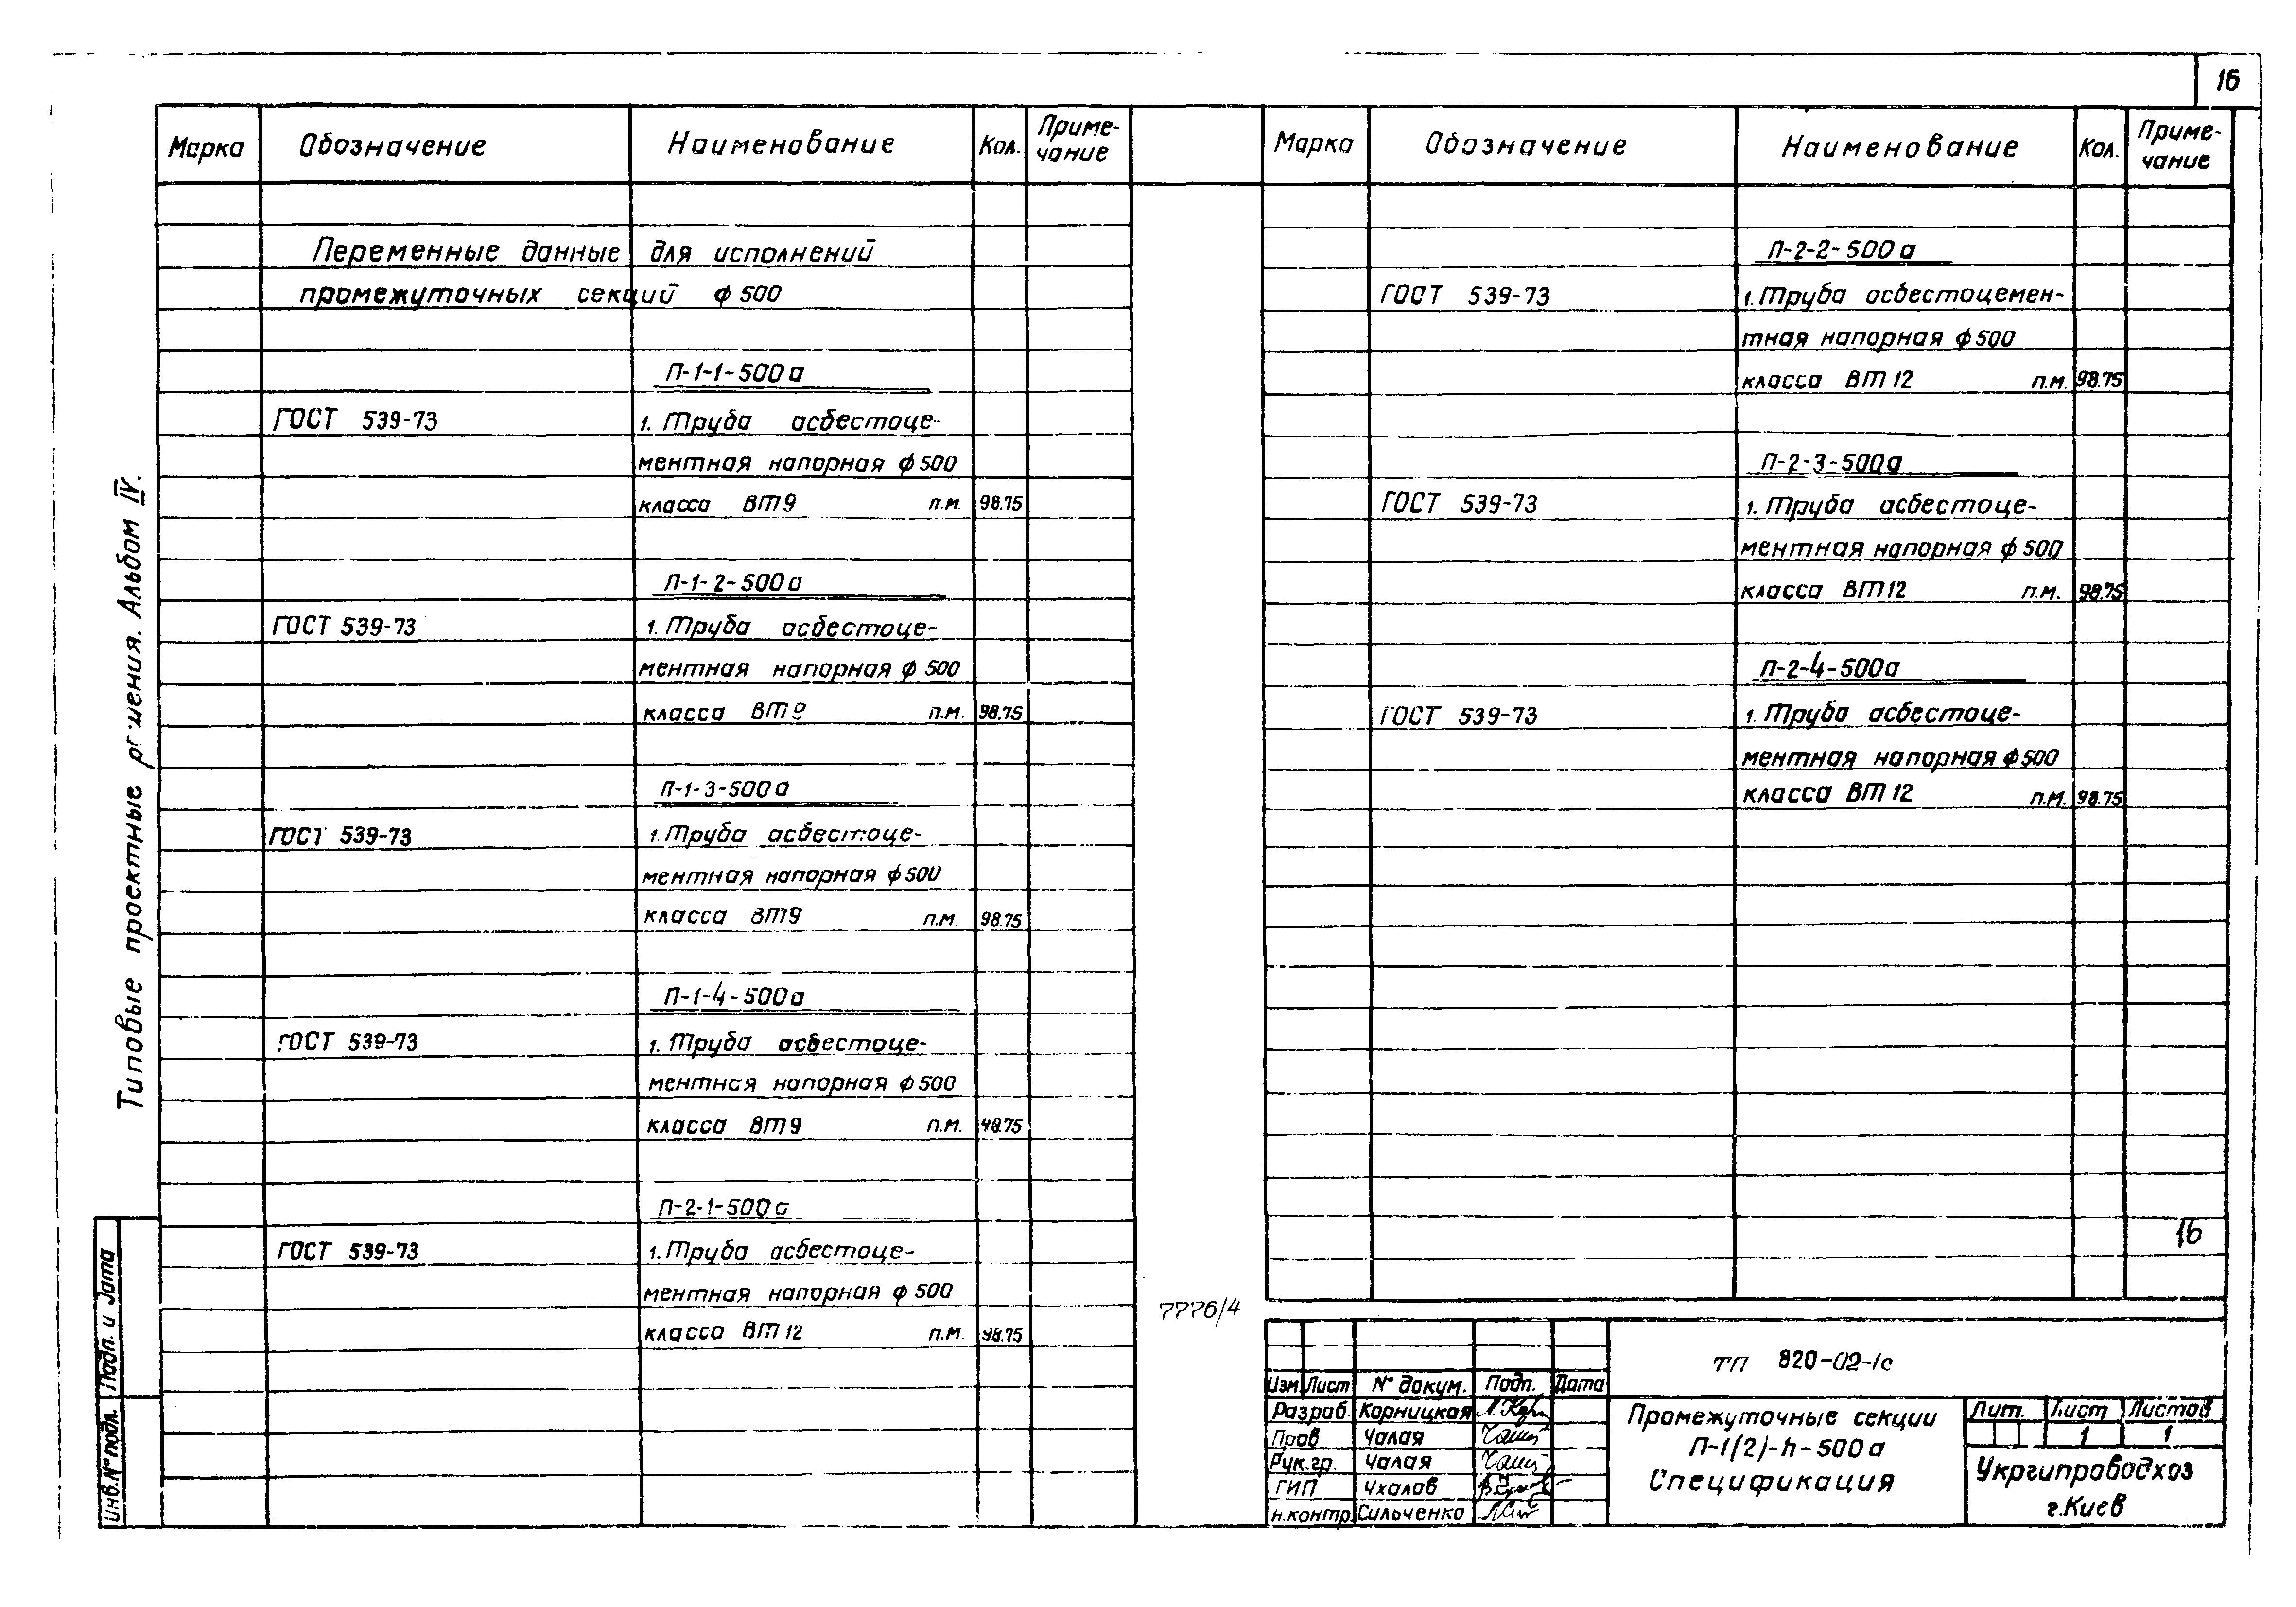 16
Марка Обозначение Наименование Кол. Приме-
чание
Переменные данные для исполнений
промежуточных секций ф 500
П-1-1-500а
ГОСТ 539-73 1. Труба асбестоце-
ментная напорная ф 500
класса ВТ 9 п.м. 98.75
П-1-2-500а
ГОСТ 539-73 1. Труба асбестоце-
ментная напорная ф 500
класса ВТ 9 п.м. 98.75
П-1-3-500а
ГОСТ 539-73 1. Труба асбестоце-
ментная напорная ф 500
класса ВТ9 п.м. 98.75
П-1-4-500а
ГОСТ 539-73 1. Труба асбестоце-
ментная напорная ф 500
класса ВТ9 п.м. 98.75
П-2-1-500а
ГОСТ 539-73 1. Труба асбестоце-
ментная напорная ф 500
класса ВТ 12 п.м 98.75
Марка Обозначение Наименование Кол. Приме-
чание
П-2-2-500а
ГОСТ 539-73 1. Труба асбестоцемен-
тная напорная ф 500
класса ВТ 12 п.м. 98.75
П-2-3-500а
ГОСТ 539-73 1. Труба асбестоце-
ментная напорная ф 500
класса ВТ12 п.м. 98.75
П-2-4-500а
ГОСТ 539-73 1. Труба асбестоце-
ментная напорная ф 500
класса ВТ 12 п.м. 98.75
16
Типовые проектные решения. Альбом IV.
Подп. и дата
Инв. № подл.
7776/4
ТП 820-02-1с
Изм. Лист № докум. Подп. Дата
Разраб. Корницкая
Пров Чалая
Рук.гр. Чалая
ГИП Чхалов
н.контр. Сильченко
Промежуточные секции
П-1(2)-h-500а
Спецификация
Лит. Лист Листов
1 1
Укргипроводхоз
г.Киев